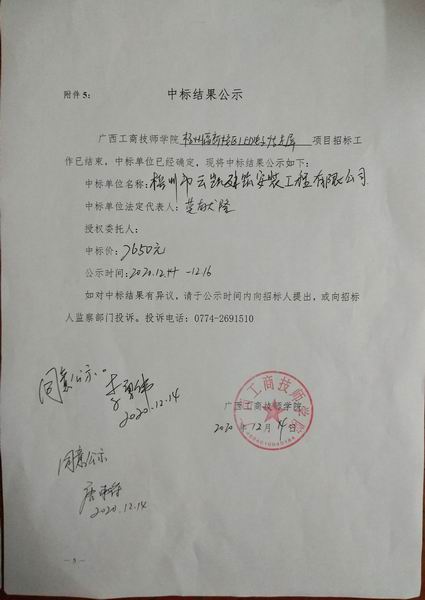 附件5:
中标结果公示
广西工商技师学院 校区LED电子 项目招标工
作已结束，中标单位已经确定，现将中标结果公示如下：
中标单位名称：梧州市云凯建筑安装工程有限公司
中标单位法定代表人：隆
授权委托人：
中标价：7650元
公示时间：2020.12.14-12.16
如对中标结果有异议，请于公示时间内向招标人提出，或向招标
人监察部门投诉。投诉电话：0774-2691510
同意公示。
2020.12.14
广西工商技师学院
2020年12月14日
同意公示
2020.12.14
— 5 —